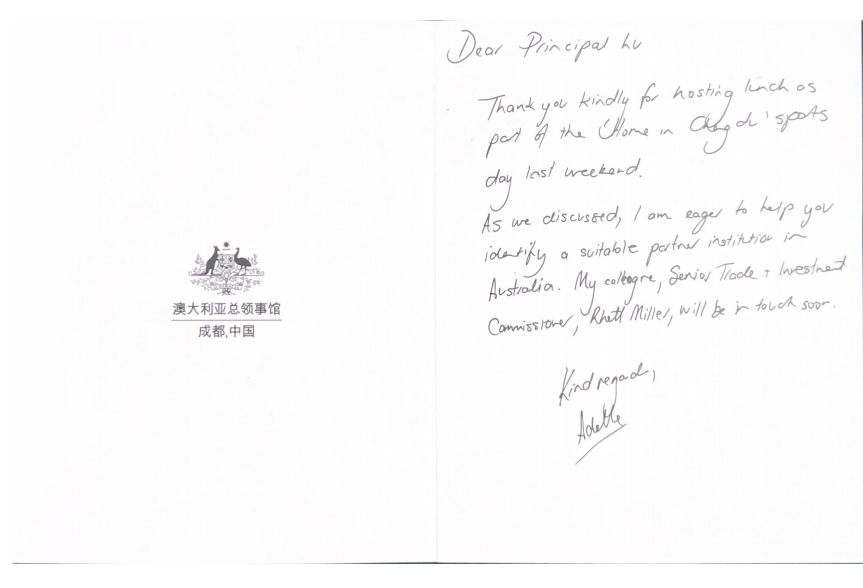 澳大利亚总领事馆
成都,中国
Dear Principal Lu
Thank you kindly for hosting lunch as
part of the 'Home in Chengdu' sports
day last weekend.
As we discussed, I am eager to help you
identify a suitable partner institution in
Australia. My colleague, Senior Trade + Investment
Commissioner, Rhett Miller, will be in touch soon.
Kind regards,
Adelle